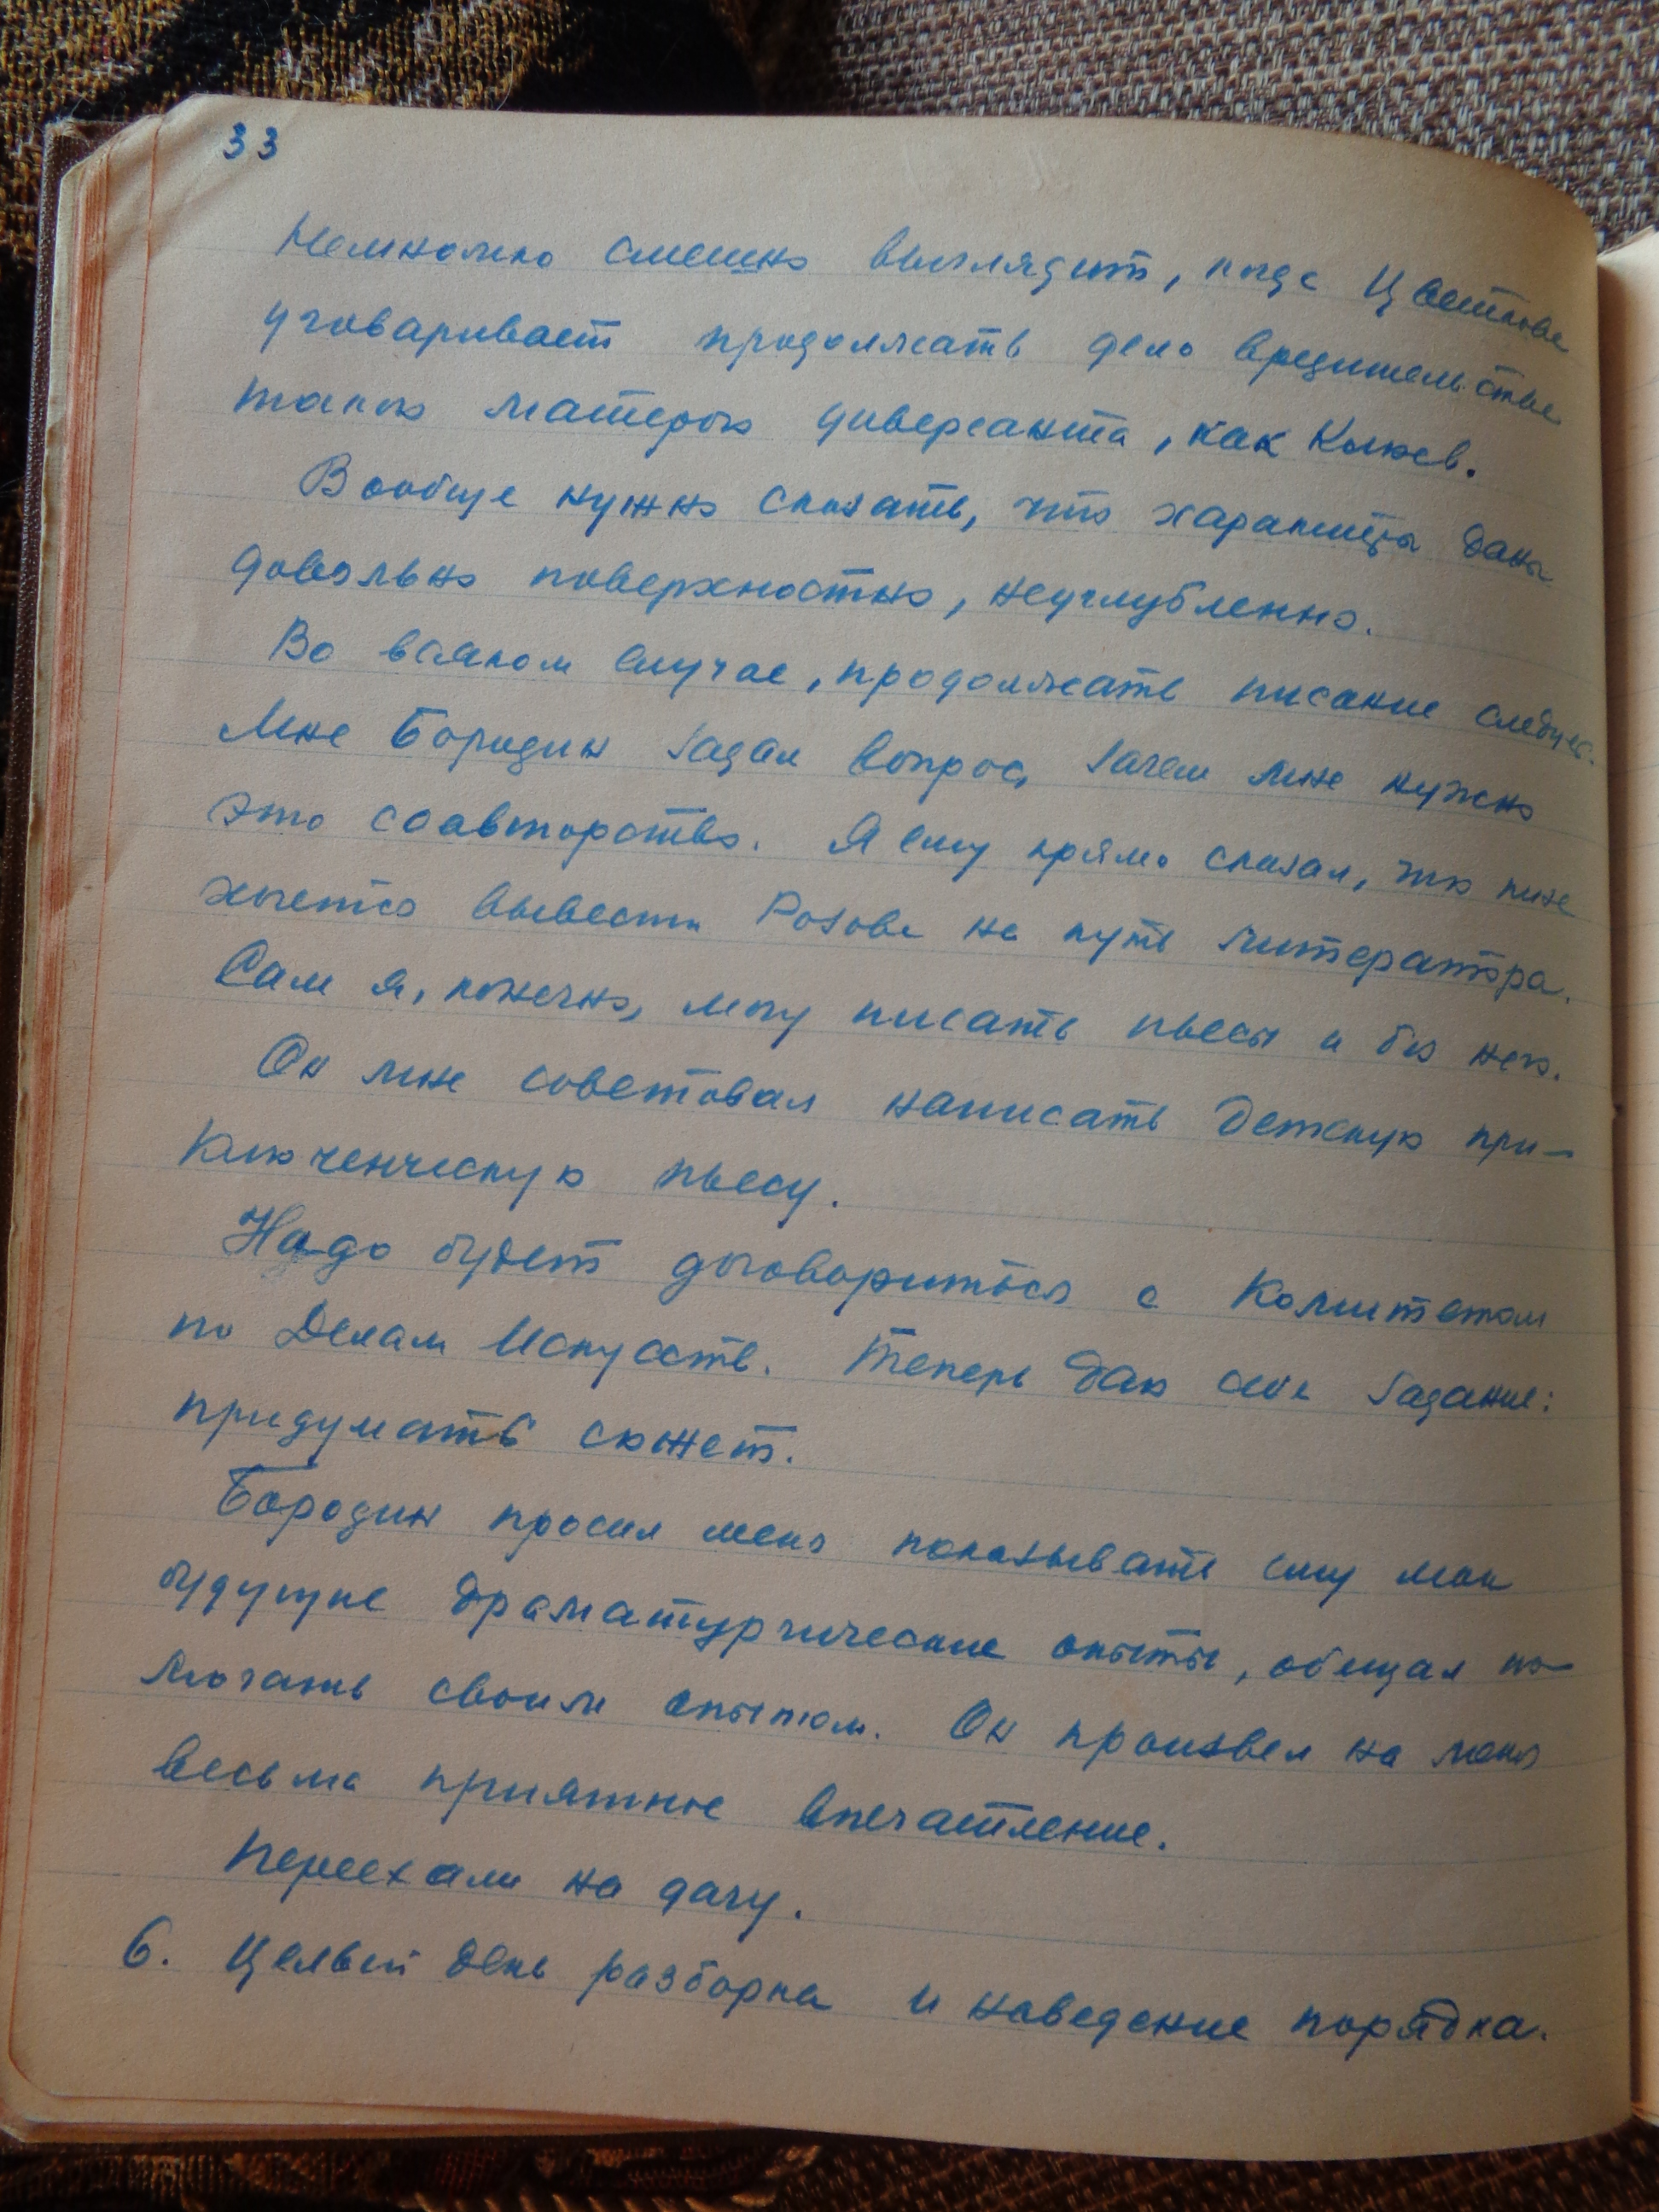 33
Немножко смешно выглядит, когда Цветкова
уговаривает продолжать дело вредительства
такого матерого диверсанта, как
Вообще нужно сказать, что характеры даны
довольно поверхностно, неуглубленно.
Во всяком случае, продолжать писание следует.
Мне Бородин задал вопрос, зачем мне нужно
это соавторство. Я ему прямо сказал, что мне
хочется вывести Розова на путь литератора.
Сам я, конечно, могу писать пьесы и без него.
Он мне советовал написать детскую при-
ключенческую пьесу.
Надо будет договориться с Комитетом
по Делам Искусств. Теперь даю себе задание:
придумать сюжет.
Бородин просил меня показывать ему мои
будущие драматургические опыты, обещал по-
могать своим опытом. Он произвел на меня
весьма приятное впечатление.
Переехали на дачу.
6. Целый день разборка и наведение порядка.